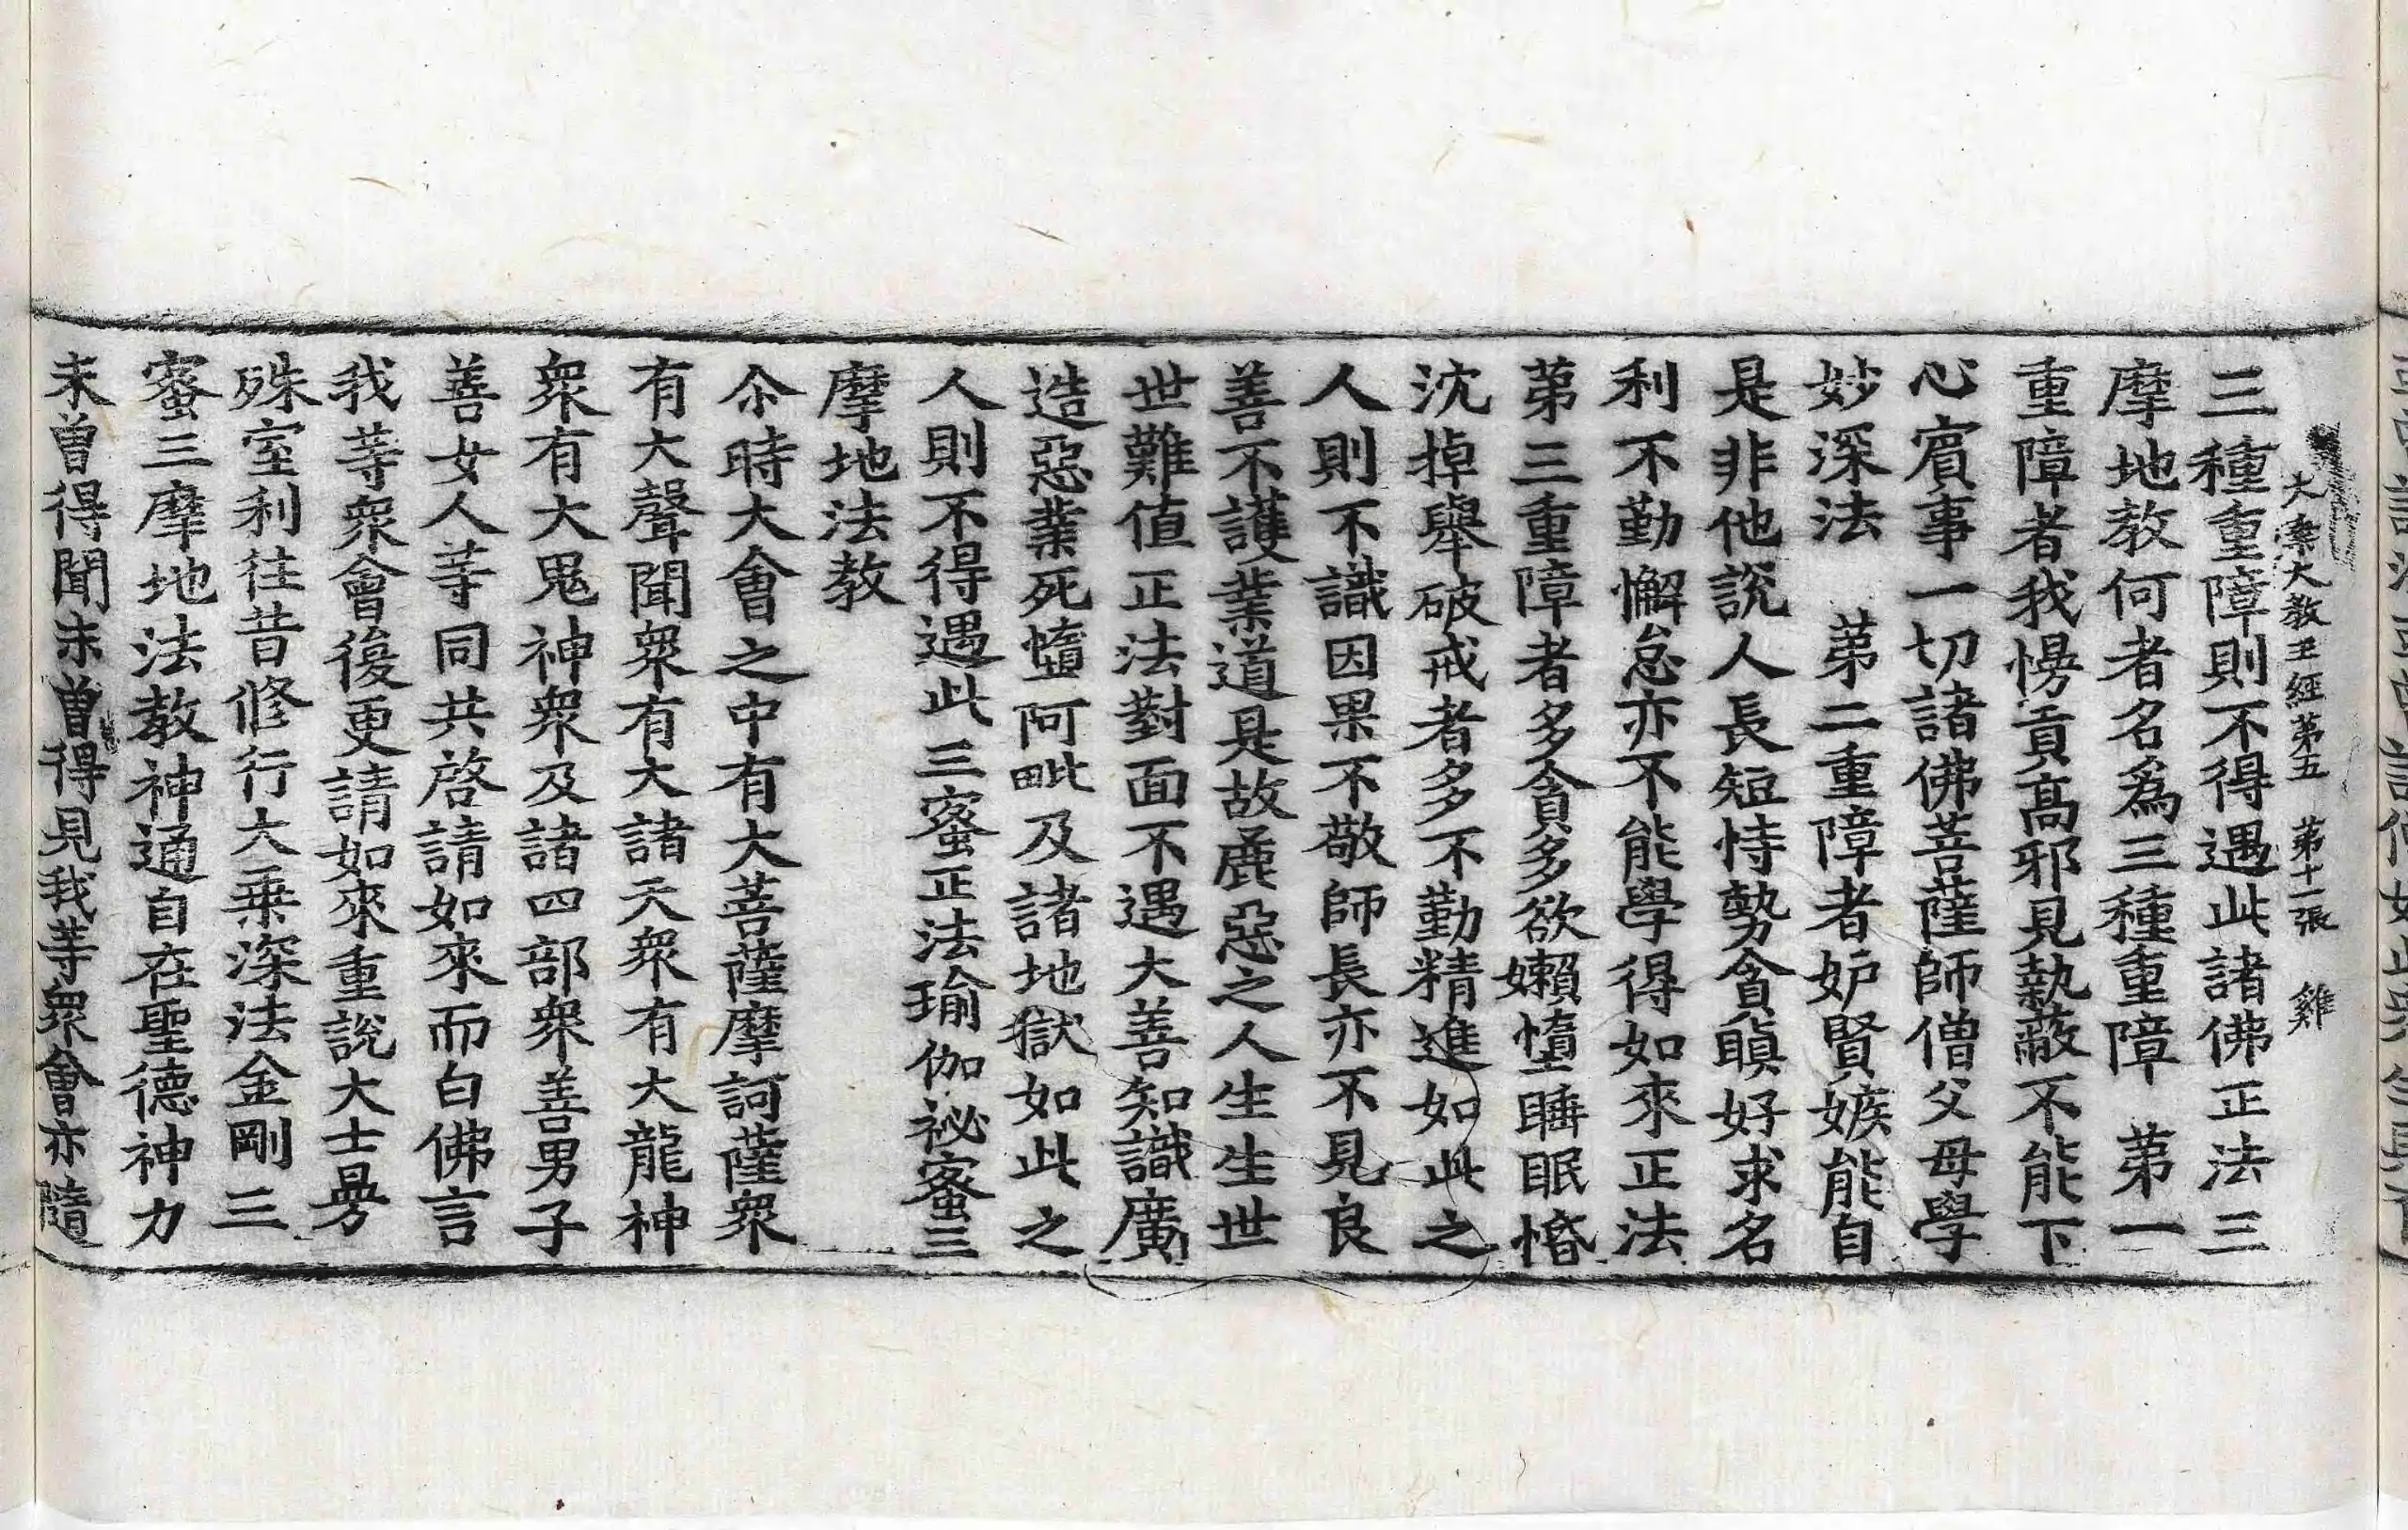 大乘大教王經第五　第十一張　雞
三種重障則不得遇此諸佛正法三
摩地教何者名爲三種重障　第一
重障者我慢貢高邪見執蔽不能下
心賓事一切諸佛菩薩師僧父母學
妙深法　第二重障者妒賢嫉能自
是非他說人長短恃勢貪瞋好求名
利不勤懈怠亦不能學得如來正法
第三重障者多貪多欲嬾惰睡眠惛
沈掉舉破戒者多不勤精進如此之
人則不識因果不敬師長亦不見良
善不護業道是故麁惡之人生生世
世難值正法對面不遇大善知識廣
造惡業死墮阿毗及諸地獄如此之
人則不得遇此三蜜正法瑜伽祕蜜三
摩地法教
尒時大會之中有大菩薩摩訶薩衆
有大聲聞衆有大諸天衆有大龍神
衆有大鬼神衆及諸四部衆善男子
善女人等同共啓請如來而白佛言
我等衆會後更請如來重說大士曼
殊室利往昔修行大乘深法金剛三
蜜三摩地法教神通自在聖德神力
未曾得聞未曾得見我等衆會亦隨